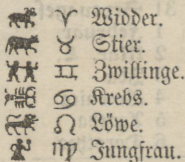 ♈ Widder.
♉ Stier.
♊ Zwillinge.
♋ Krebs.
♌ Löwe.
♍ Jungfrau.